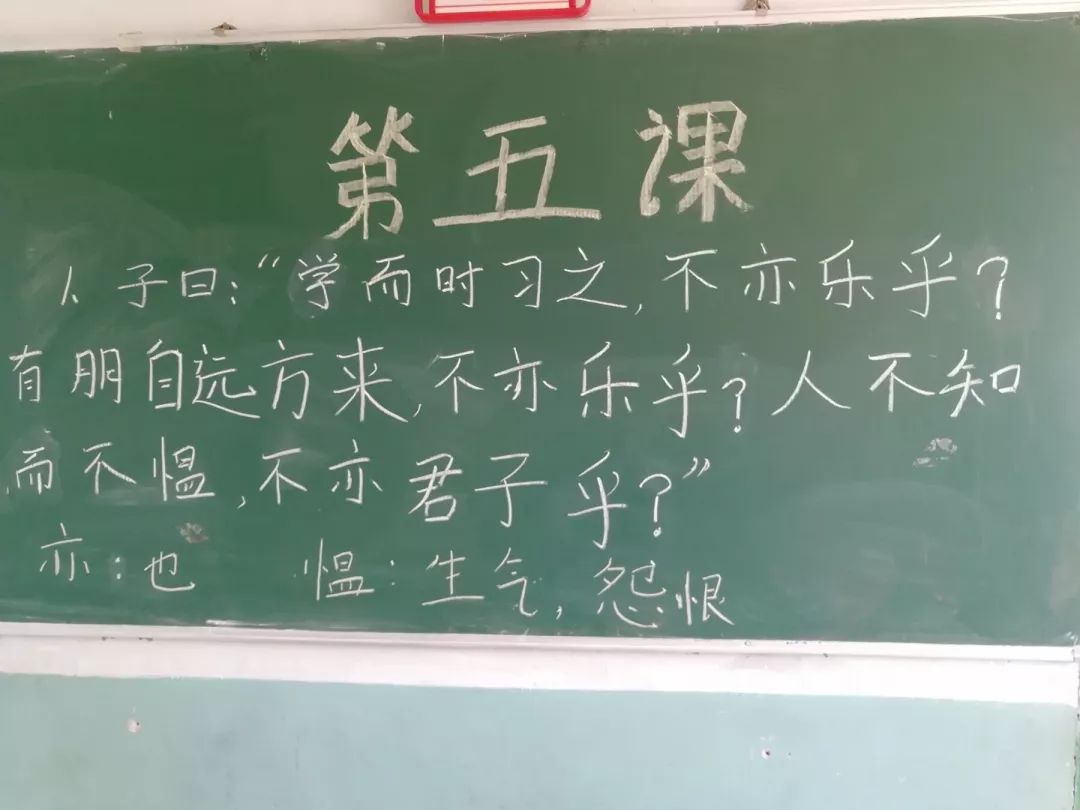 第五课
1、子曰：“学而时习之，不亦乐乎？
有朋自远方来，不亦乐乎？人不知
而不愠，不亦君子乎？”
亦：也 愠：生气，怨恨